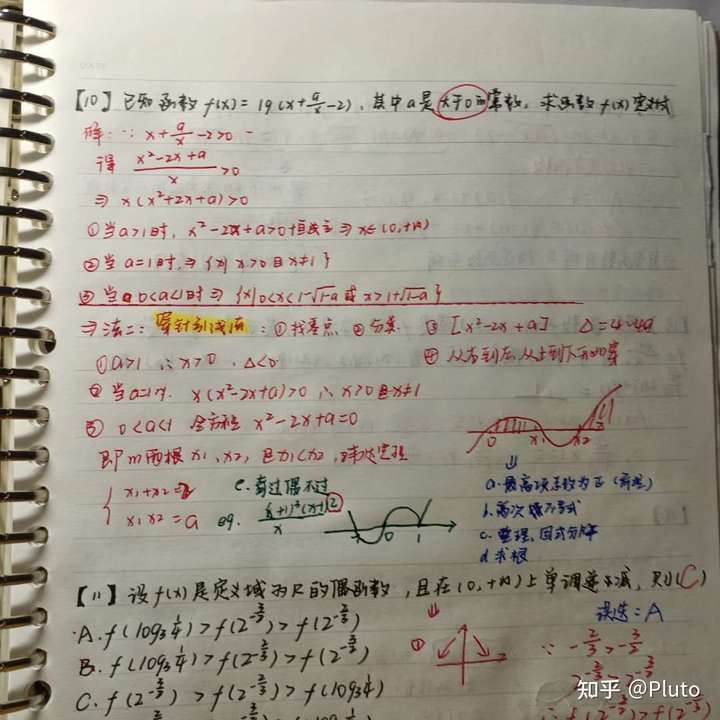 【10】已知函数 f(x) = lg(x+a/x-2), 其中a是大于0的常数, 求函数f(x)定义域
解: ∵ x+a/x-2>0
得 (x²-2x+a)/x >0
⇒ x(x²+2x+a)>0
①当a>1时, x²-2x+a>0恒成立 ⇒ x∈(0,+∞)
②当a=1时, ⇒ {x| x>0且x≠1}
③当 0<a<1时 ⇒ {x|0<x<1-√1-a 或 x>1+√1-a}
⇒ 法二: 穿针引线法: ①找零点 ②分类 ③[x²-2x+a] Δ=4-4a
①a>1 ∴ x>0. Δ<0 ④从右到左从上到下开始穿
②当a=1时. x(x²-2x+a)>0 ∴ x>0且x≠1
③ 0<a<1 令方程 x²-2x+a=0
即两根x₁,x₂, 且x₁<x₂, 韦达定理
0 x₁ x₂
{ x₁+x₂=2
x₁x₂=a
e.奇过偶不过
eg. (x+1)³(x+1)²/x
-1 0 1
⇓
a.最高项系数为正
b.高次不等式
c.整理、因式分解
d.求根
【11】设f(x)是定义域为R的偶函数, 且在(0,+∞)上单调递减, 则(C)
误选=A
A. f(log₃1/4)>f(2^-3/2)>f(2^-2/3)
B. f(log₃1/4)>f(2^-2/3)>f(2^-3/2)
C. f(2^-3/2)>f(2^-2/3)>f(log₃1/4)
⇓
①
∵ -2/3>-3/2
知乎 @Pluto